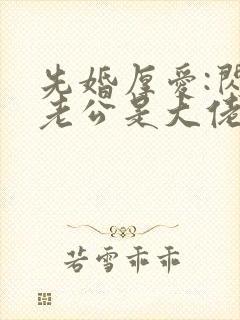 先婚厚爱:闪
老公是大佬
若雪乖乖